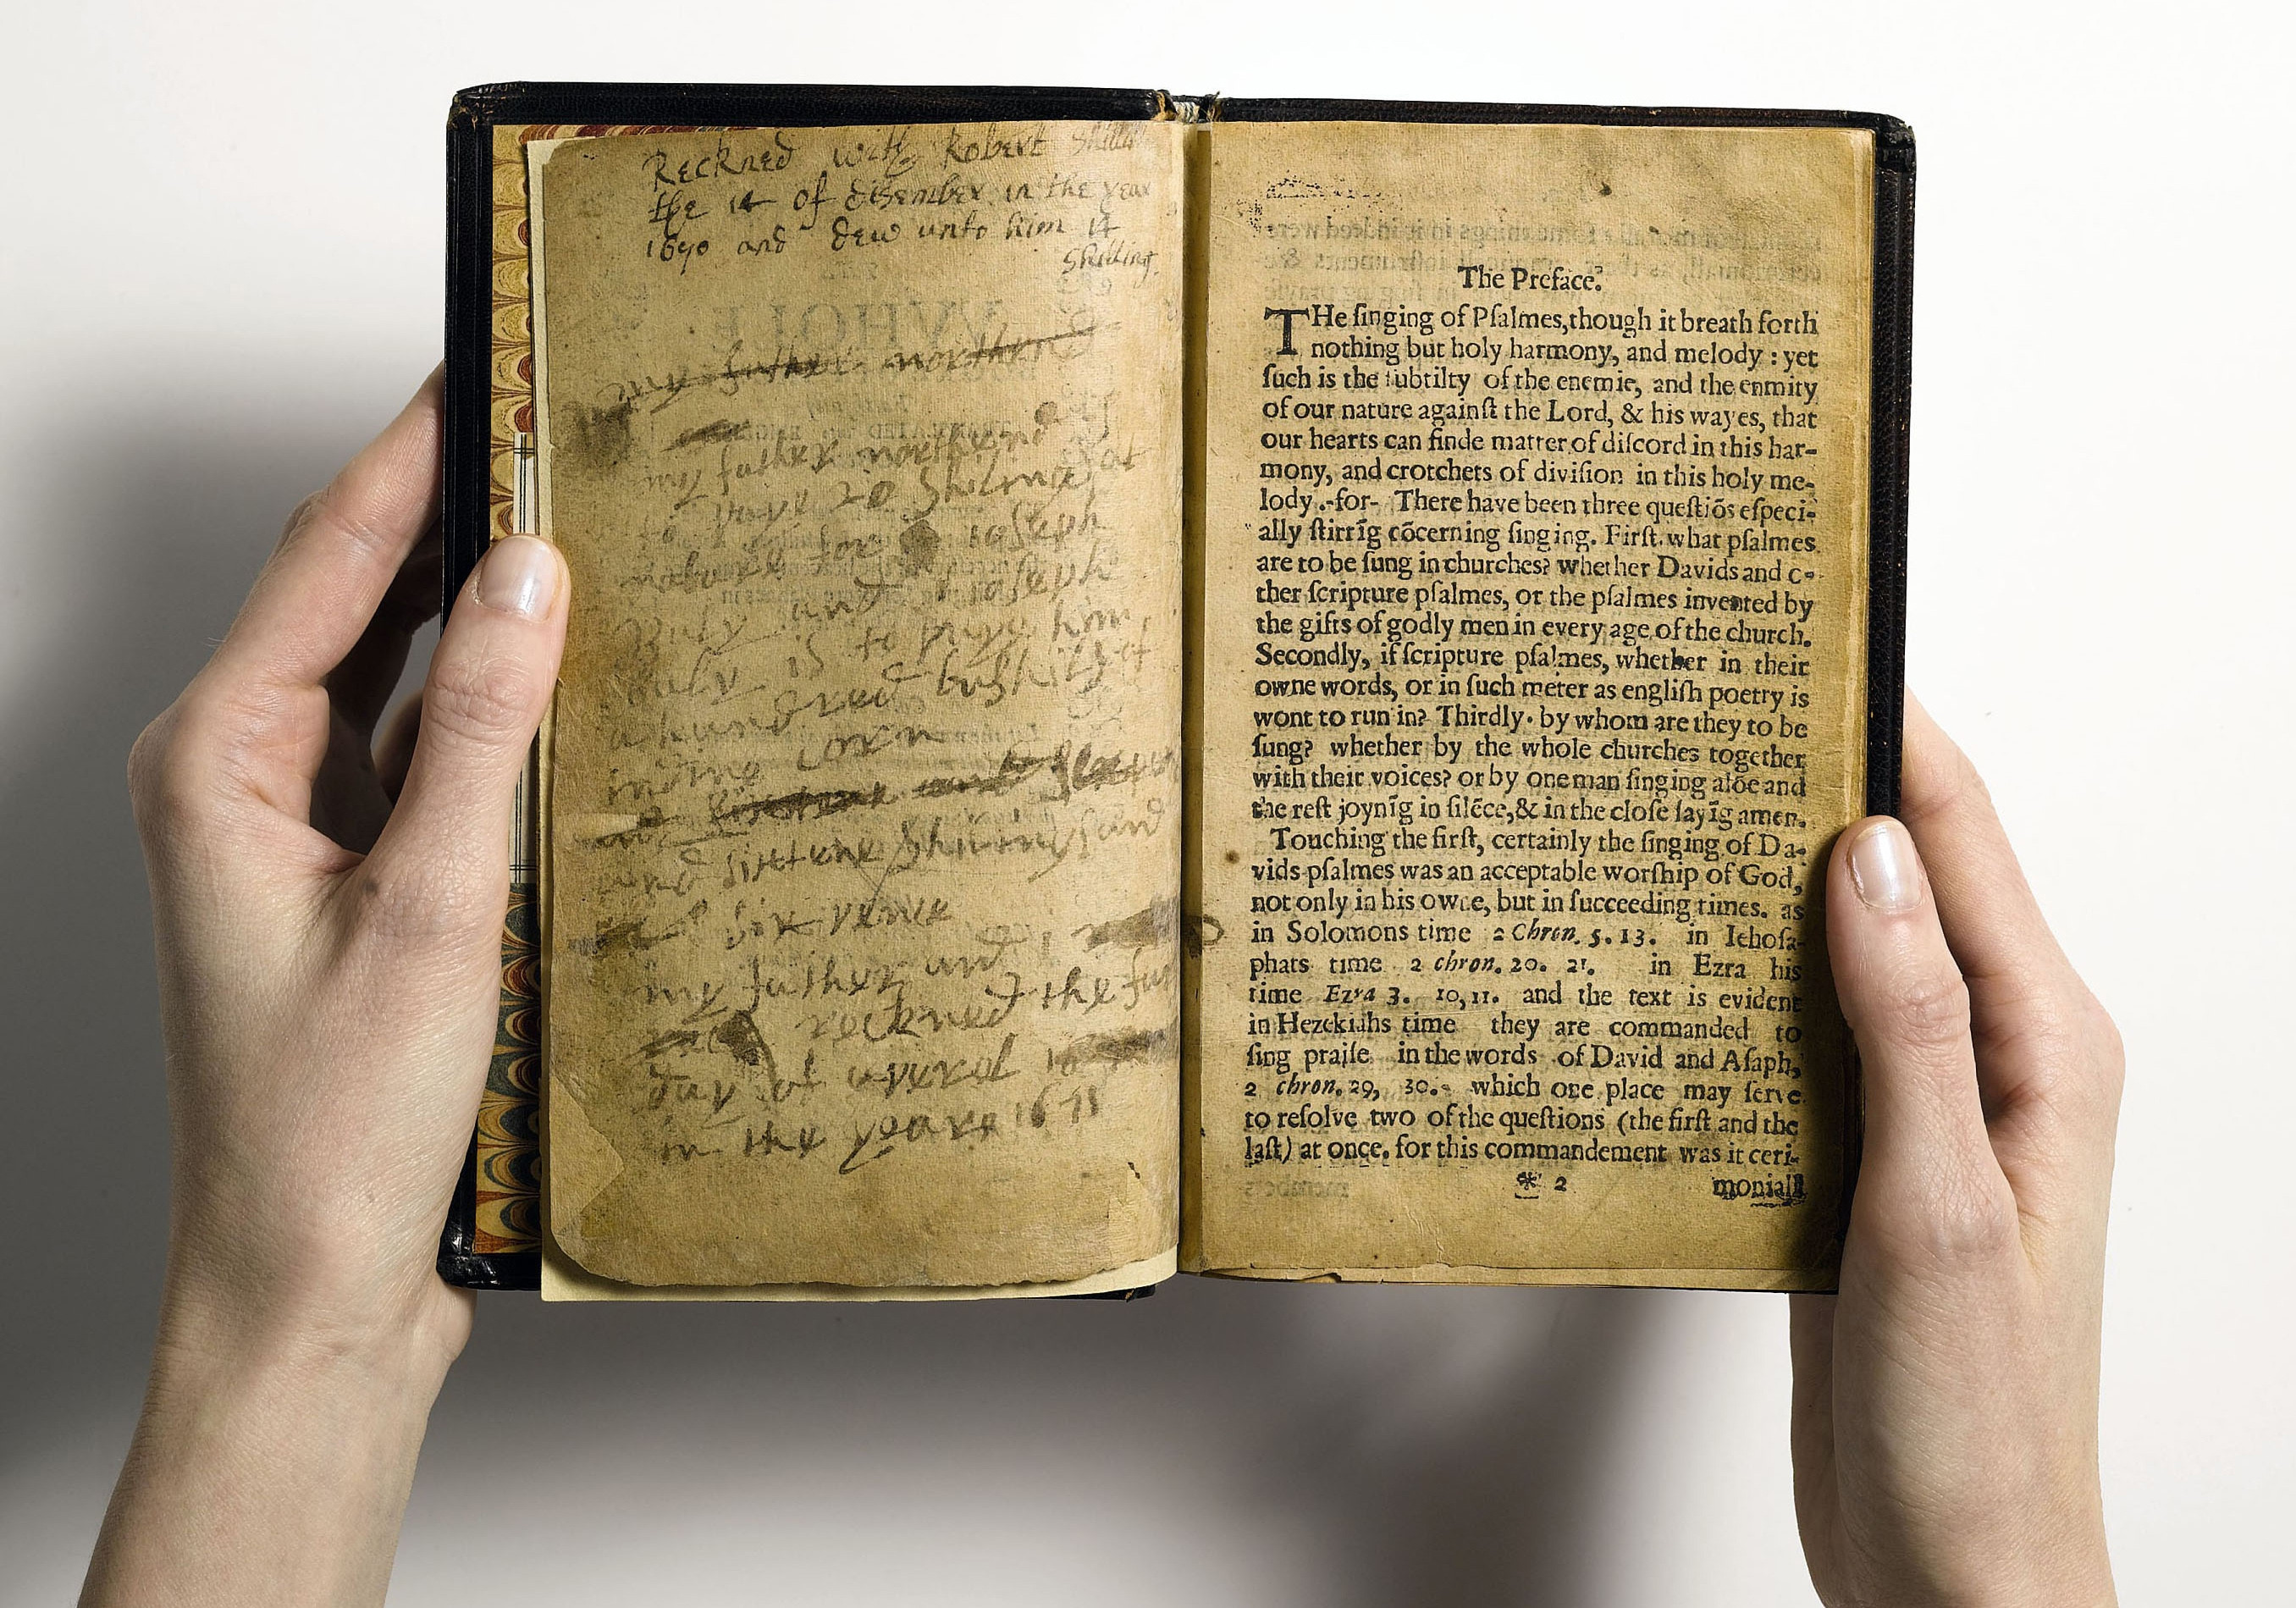 Reckned with Robert
the 14 of disember in the year
1690 and dew unto him 14
Shilling
my father northend
my father northend
to paye 20 Shilings at
for ioseph
and ioseph
is to paye him
a hundred bushils of
inding corn
and sixtene Shilings and
six penc
my father and i
reckned the
day of aperel
in the yeare 1671
The Preface.
THe ſinging of Pſalmes, though it breath forth
nothing but holy harmony, and melody : yet
ſuch is the ſubtilty of the enemie, and the enmity
of our nature againſt the Lord, & his wayes, that
our hearts can finde matter of diſcord in this har-
mony, and crotchets of diviſion in this holy me-
lody .-for- There have been three queſtiōs eſpeci-
ally ſtirrīg cōcerning ſinging. Firſt. what pſalmes
are to be ſung in churches? whether Davids and o-
ther ſcripture pſalmes, or the pſalmes invented by
the gifts of godly men in every age of the church.
Secondly, if ſcripture pſalmes, whether in their
owne words, or in ſuch meter as engliſh poetry is
wont to run in? Thirdly. by whom are they to be
ſung? whether by the whole churches together
with their voices? or by one man ſinging alōe and
the reſt joynīg in ſilēce, & in the cloſe ſayīg amen.
Touching the firſt, certainly the ſinging of Da-
vids pſalmes was an acceptable worſhip of God,
not only in his owne, but in ſucceeding times. as
in Solomons time 2 Chron. 5. 13. in Iehoſa-
phats time 2 chron. 20. 21. in Ezra his
time Ezra 3. 10, 11. and the text is evident
in Hezekiahs time they are commanded to
ſing praiſe in the words of David and Aſaph,
2 chron. 29, 30. which one place may ſerve
to reſolve two of the queſtions (the firſt and the
laſt) at once. for this commandement was it ceri-
* 2 moniall